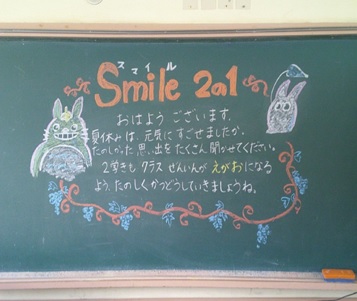 スマイル
Smile 2の1
おはよう ございます。
夏休みは、元気にすごせましたか。
たのしかった 思い出を たくさん 聞かせてください。
2学きも クラス ぜんいんが えがおになる
よう、たのしく かつどうしていきましょうね。